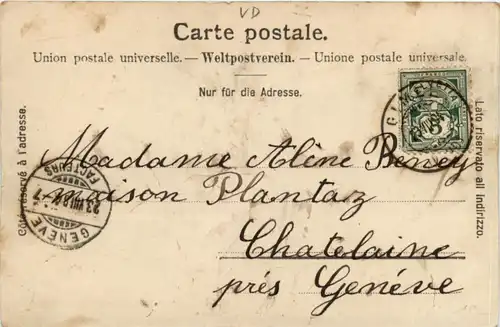 VD
Carte postale.
Union postale universelle. — Weltpostverein. — Unione postale universale.
Nur für die Adresse.
Côté réservé à l'adresse.
Lato riservato all indirizzo.
5
GENÈVE
FACTEURS
Madame Aline Beney
maison Plantaz
Chatelaine
prés Genéve